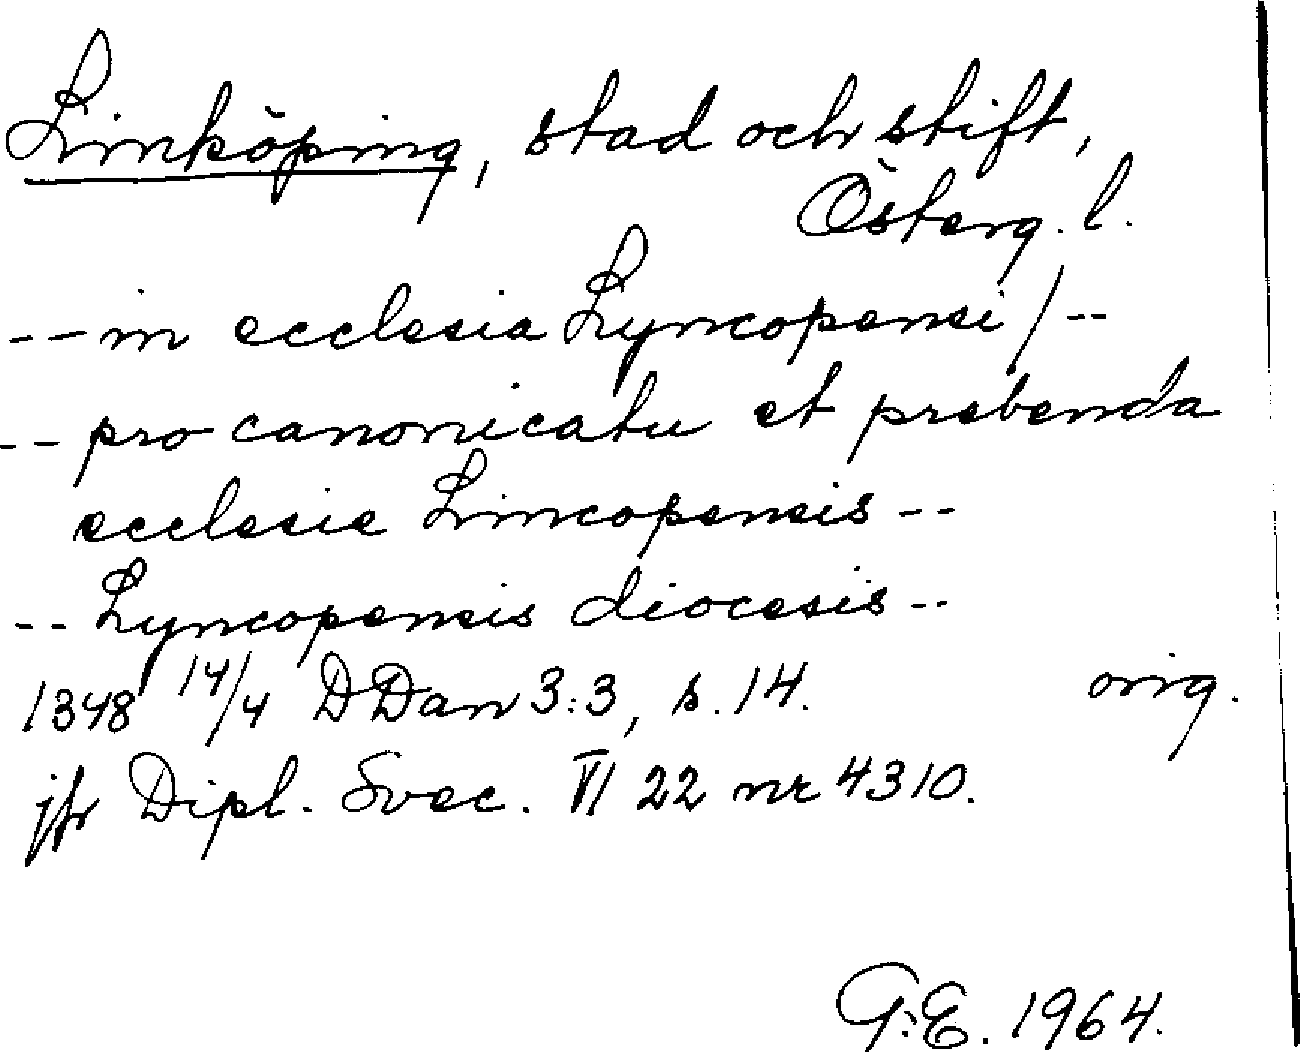 Linköping, stad och stift,
Österg. l.
-- in ecclesia Lyncopensi / --
-- pro canonicatu et prebenda
ecclesie Lincopensis --
-- Lyncopensis diocesis --
1348 14/4 DDan 3:3, s. 14. orig.
jfr Dipl. Svec. VI 22 nr 4310.
G.E. 1964.